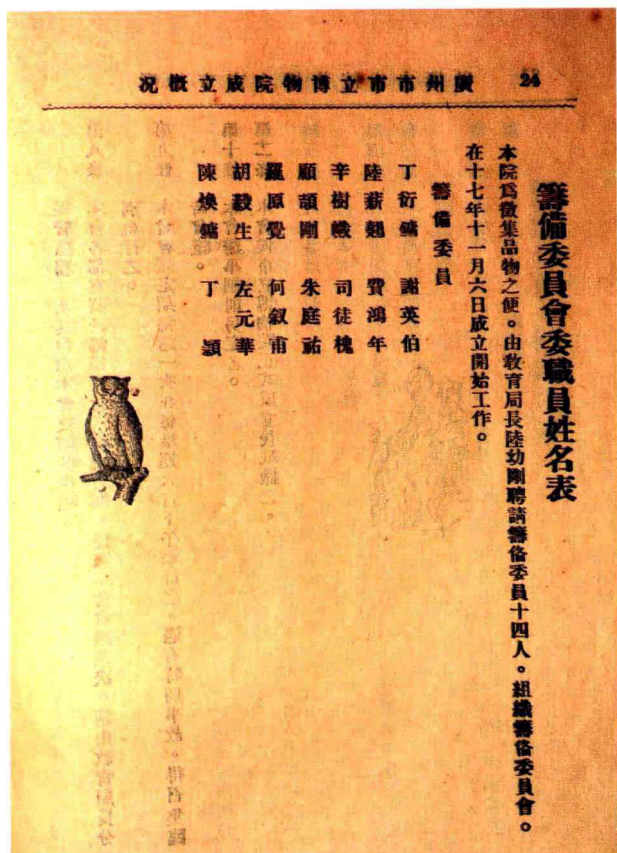 24
廣州市市立博物院成立概況
籌備委員會委職員姓名表
本院爲徵集品物之便。由敎育局長陸幼剛聘請籌備委員十四人。組織籌備委員會。
在十七年十一月六日成立開始工作。
籌備委員
丁衍鏞 謝英伯
陸薪翹 費鴻年
辛樹幟 司徒槐
顧頡剛 朱庭祜
羅原覺 何叙甫
胡毅生 左元華
陳煥鏞 丁 頴